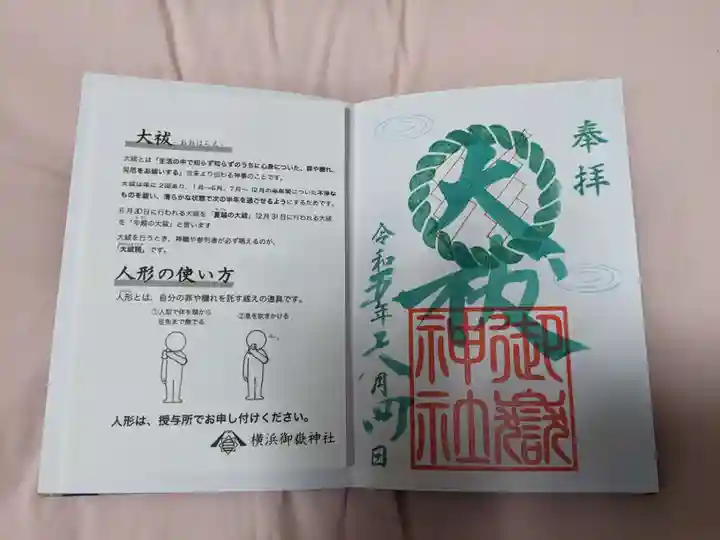 大祓 おおはらえ
大祓とは「生活の中で知らず知らずのうちに心身についた、罪や穢れ、
災厄をお祓いする」古来より伝わる神事のことです。
大祓は年に2回あり、1月〜6月、7月〜12月の各年間についた不浄な
ものを祓い、清らかな状態で次の半年を過ごせるようにするためです。
6月30日に行われる大祓を「夏越の大祓」12月31日に行われる大祓
を「年越の大祓」と言います
大祓を行うとき、神職や参列者が必ず唱えるのが、
「大祓詞」です。
人形の使い方
人形とは、自分の罪や穢れを託す祓えの道具です。
①人形で体を頭から
足先まで撫でる
②息を吹きかける
人形は、授与所でお申し付けください。
横浜御嶽神社
奉拝
大祓
御嶽
神社
令和五年六月四日